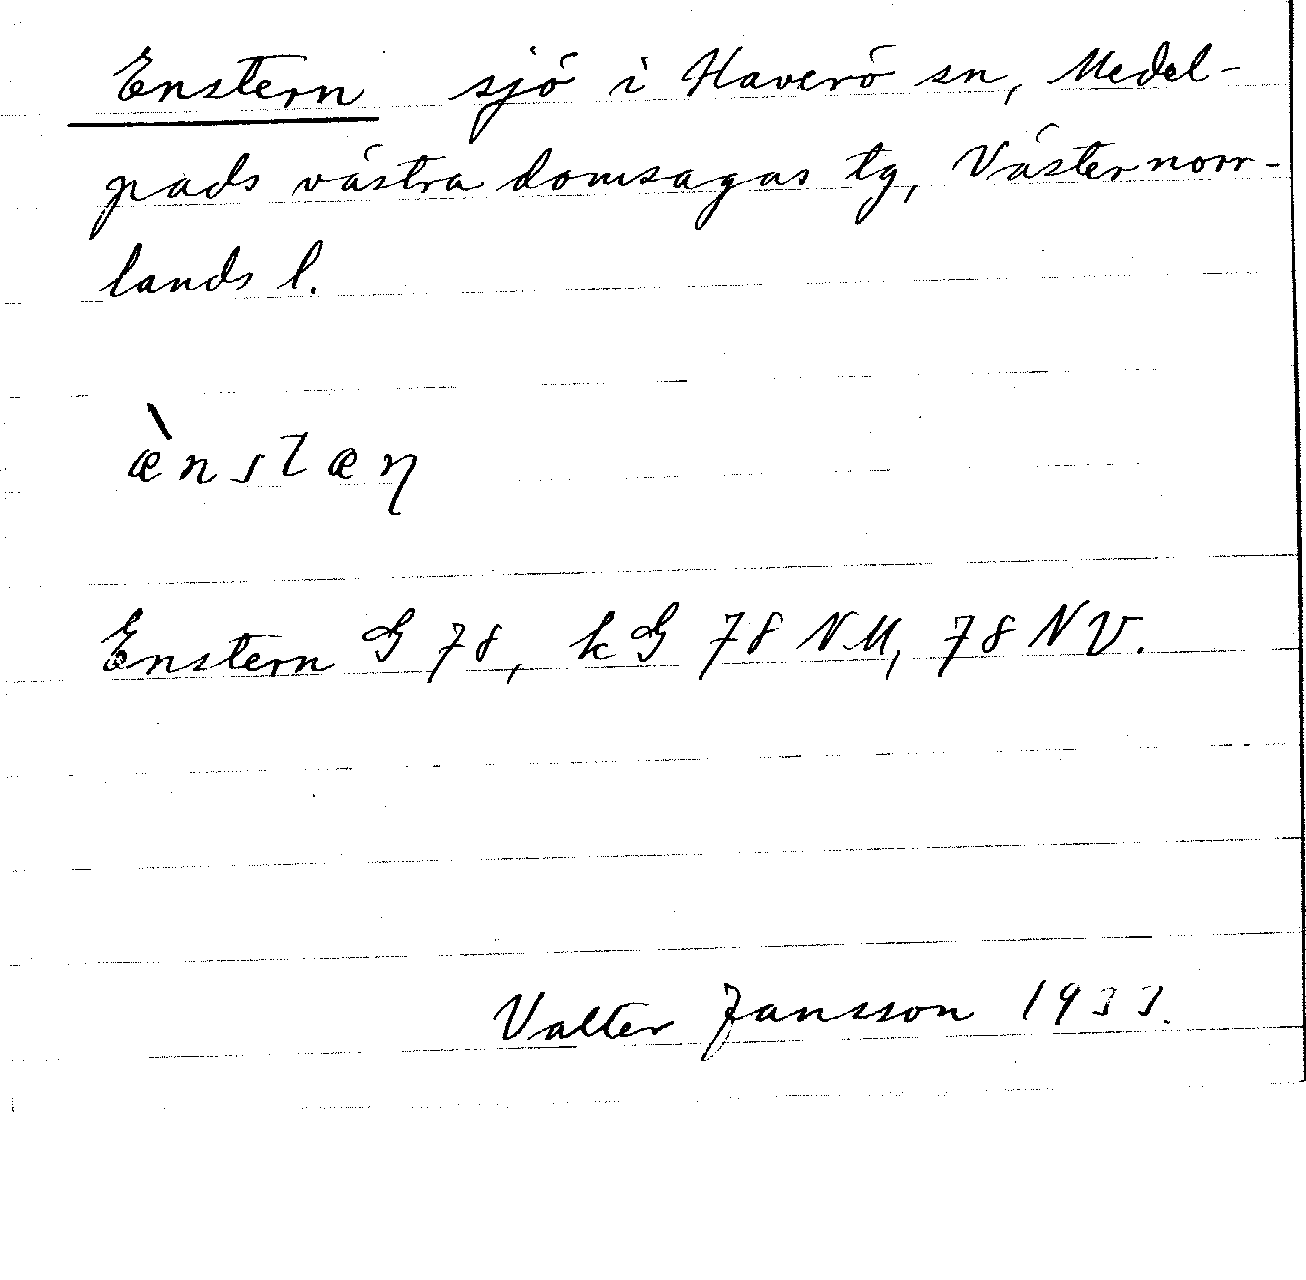 Enstern sjö i Haverö sn, Medel-
pads västra domsagas tg, Västernorr-
lands l.
æ̀nstæɳ
Enstern G 78, kG 78 NM, 78 NV.
Valter Jansson 1933.